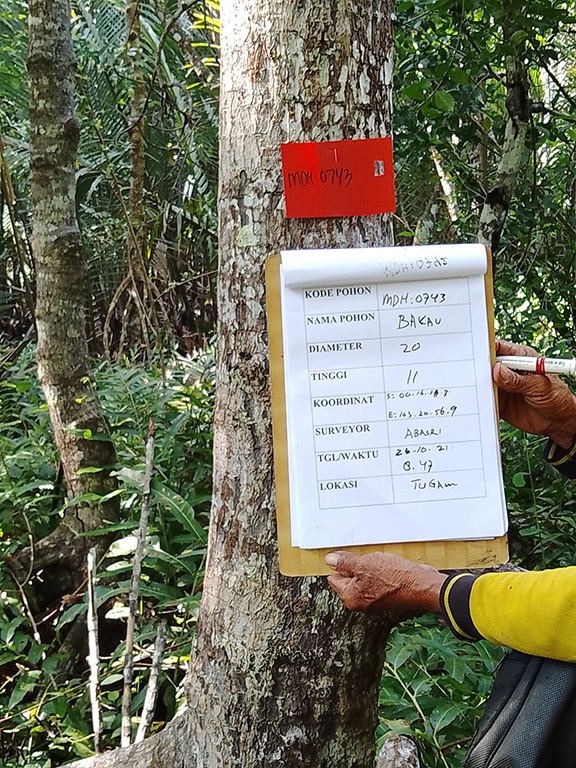 MDH 0743
KODE POHON MDH:0743
NAMA POHON BAKAU
DIAMETER 20
TINGGI 11
KOORDINAT S: 00.16.
E:103.20.56.9
SURVEYOR ABASRI
TGL/WAKTU 26-10-21
8.47
LOKASI TUGAM